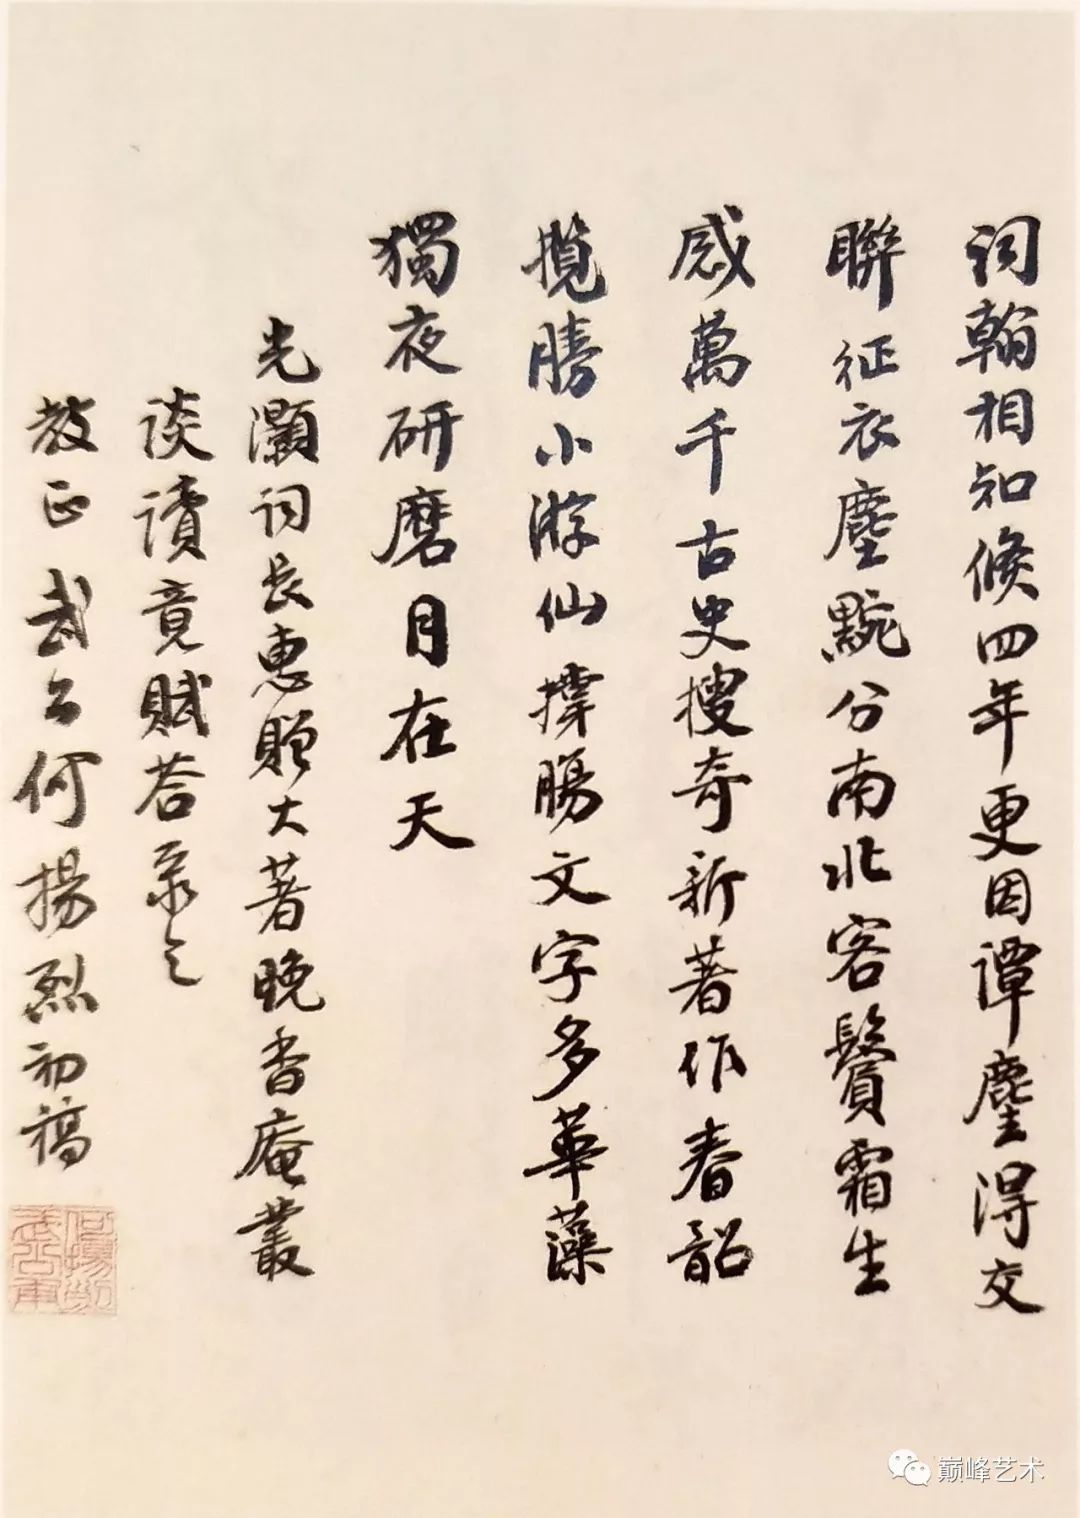 詞翰相知倏四年更因譚麈得交
聯征衣塵黦分南北客鬢霜生
感萬千古史搜奇新著作春韶
攬勝小游仙撐腸文字多華藻
獨夜研磨月在天
光灝詞長惠贈大著晚香庵叢
談讀竟賦答乞
教正武公何揚烈初稿
巅峰艺术